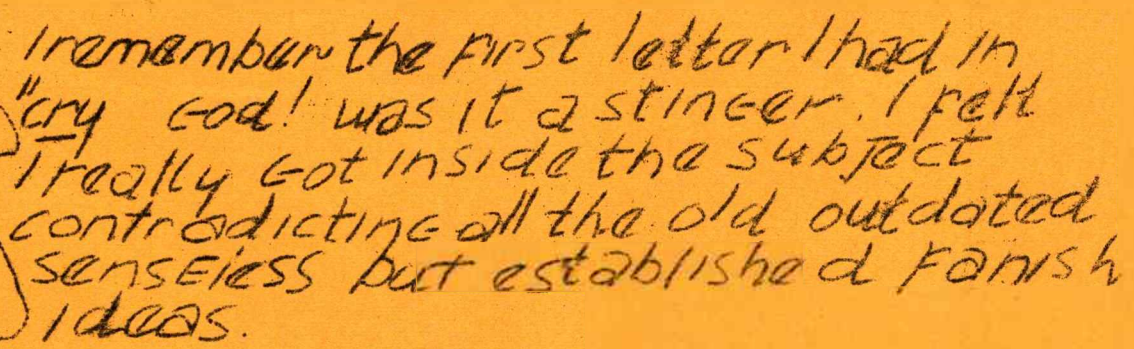 I remember the first letter I had in
"cry God! was it a stinger. I felt
I really got inside the subject
contradicting all the old outdated
senseless but established fanish
ideas.